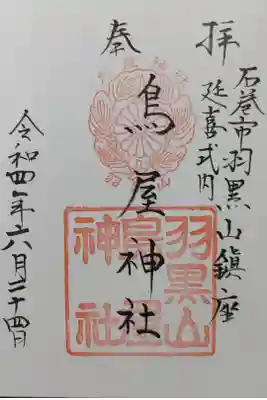 奉拝
石巻市羽黒山鎮座
延喜式内
鳥屋神社
令和四年六月二十四日
羽黒山
鳥屋
神社